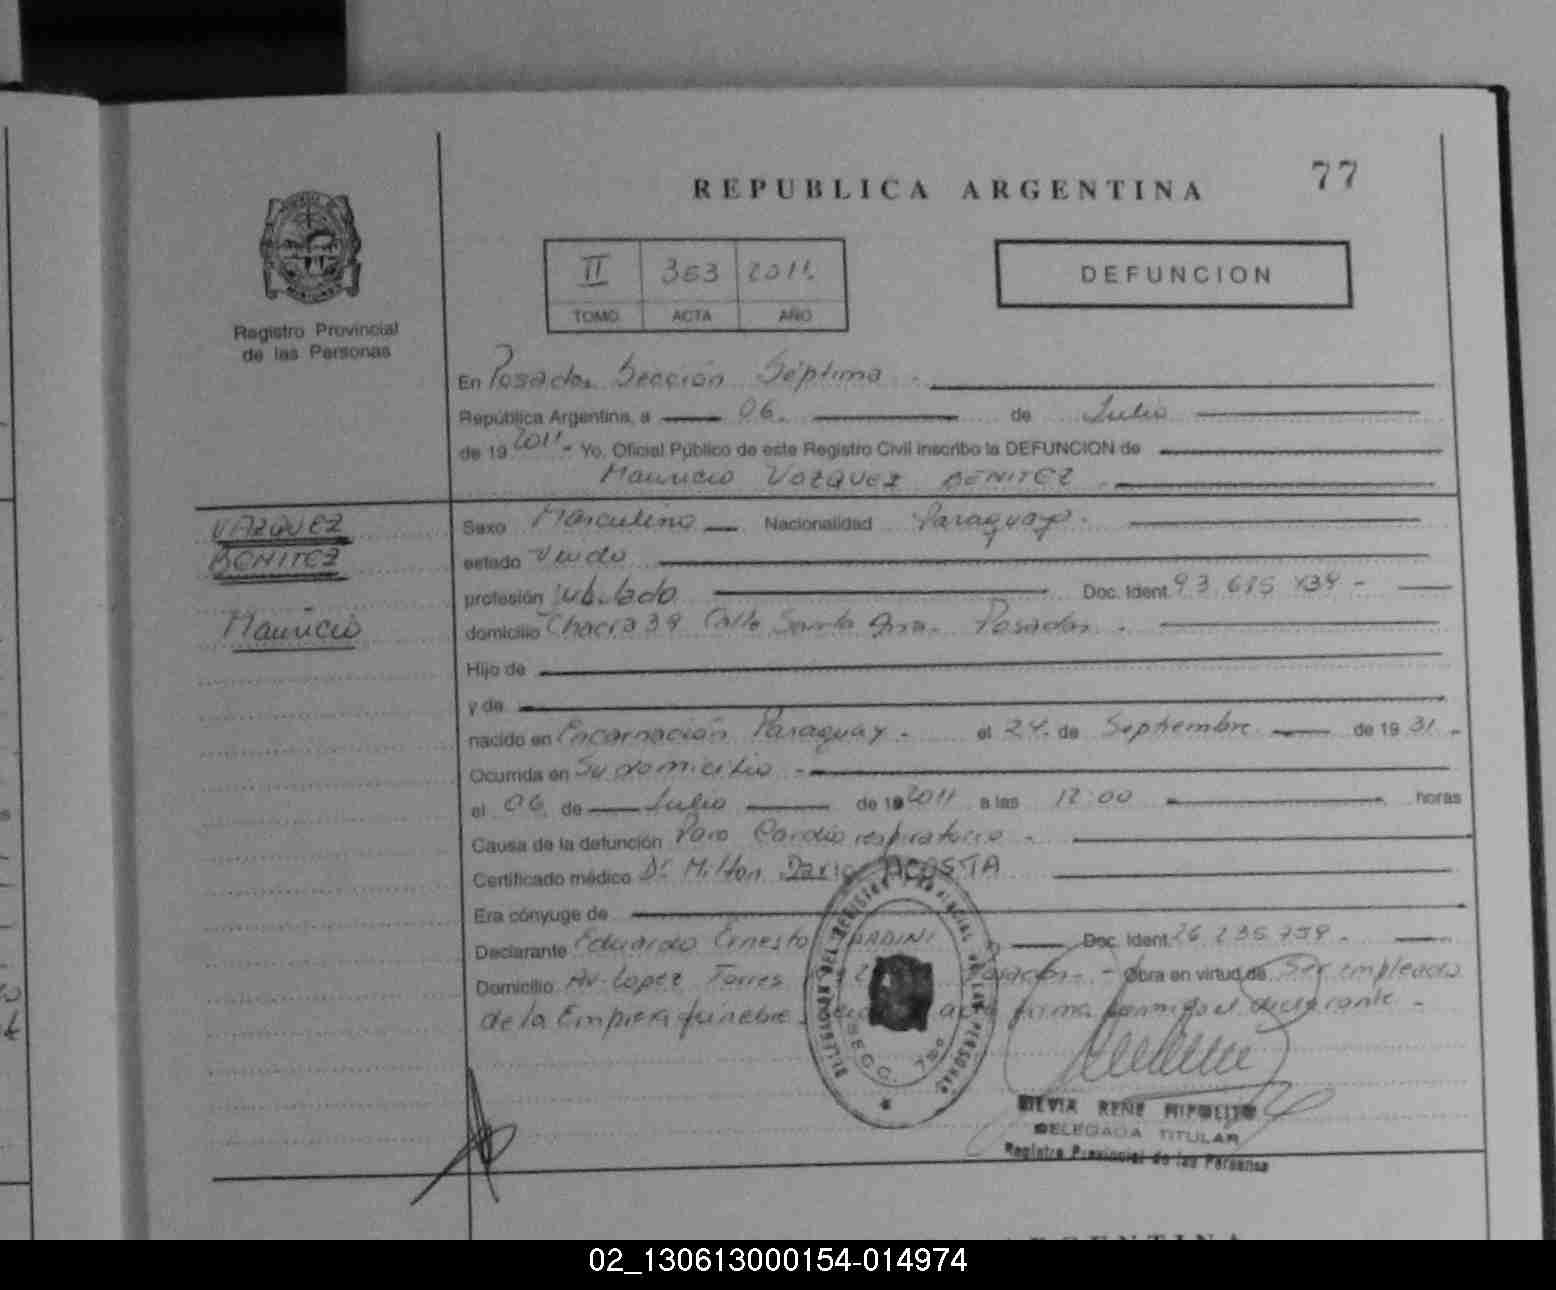 REPUBLICA ARGENTINA
77
II 353 2011.
TOMO ACTA AÑO
DEFUNCION
Registro Provincial
de las Personas
En Posadas Sección Séptima
República Argentina, a 06. de Julio
de 19 2011.- Yo, Oficial Público de este Registro Civil inscribo la DEFUNCION de
Mauricio VAZQUEZ BENITEZ
VAZQUEZ
BENITEZ
Mauricio
Sexo Masculino Nacionalidad Paraguaya.
estado Viudo
profesión Jubilado Doc. Ident. 93.615
domicilio Chacra 39 Calle Santa Ana. Posadas.-
Hijo de
y de
nacido en Encarnación Paraguay.- el 24. de Septiembre. de 19 31.-
Ocurrida en Su domicilio.-
el 06 de Julio de 19 2011 a las 12:00 horas
Causa de la defunción Paro Cardio respiratorio.-
Certificado médico Dr. Milton Dario ACOSTA
Era cónyuge de
Declarante Eduardo Ernesto Doc. Ident. 26.235.759.-
Domicilio Av. Lopez Torres Posadas.- Obra en virtud de Ser empleado
de la Empresa fúnebre acta firma conmigo el declarante.-
DELEGACION DEL REGISTRO PROVINCIAL DE LAS PERSONAS
SECC. 7ma
SILVIA RENE HIPOLITO
DELEGADA TITULAR
Registro Provincial de las Personas
ARGENTINA
02_130613000154-014974